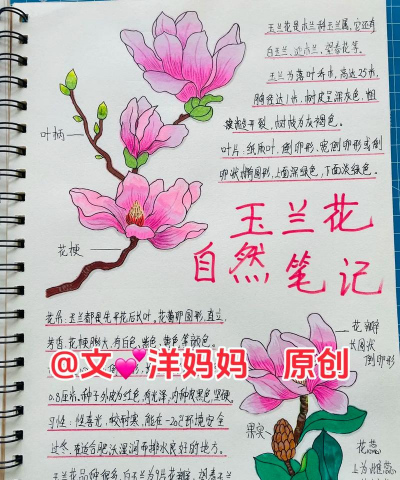 玉兰花是木兰科玉兰属,它还有
白玉兰、迎春花、望春花等。
玉兰为落叶乔木,高达25米,
胸径达1米,树皮呈深灰色,粗
糙开裂,树枝为灰褐色。
叶片:纸质叶,倒卵形,宽倒卵形或倒
卵状椭圆形,上面深绿色,下面淡绿色。
叶柄
花梗
玉兰花
自然笔记
花朵:玉兰都是先开花后长叶,花蕾卵圆形,直立,
芳香,花梗膨大,有白色、紫色、黄色等颜色。
@文💕洋妈妈 原创
0.8厘米。种子外皮为红色,有光泽,内种皮黑色坚硬。
习性:性喜光,较耐寒,能在-20℃环境安全
过冬,在适合肥沃湿润而排水良好的地方。
玉兰花品种很多,白玉兰为9片花瓣,望春玉兰
花瓣
长圆状
倒卵形
果实
花蕊
上为雌蕊